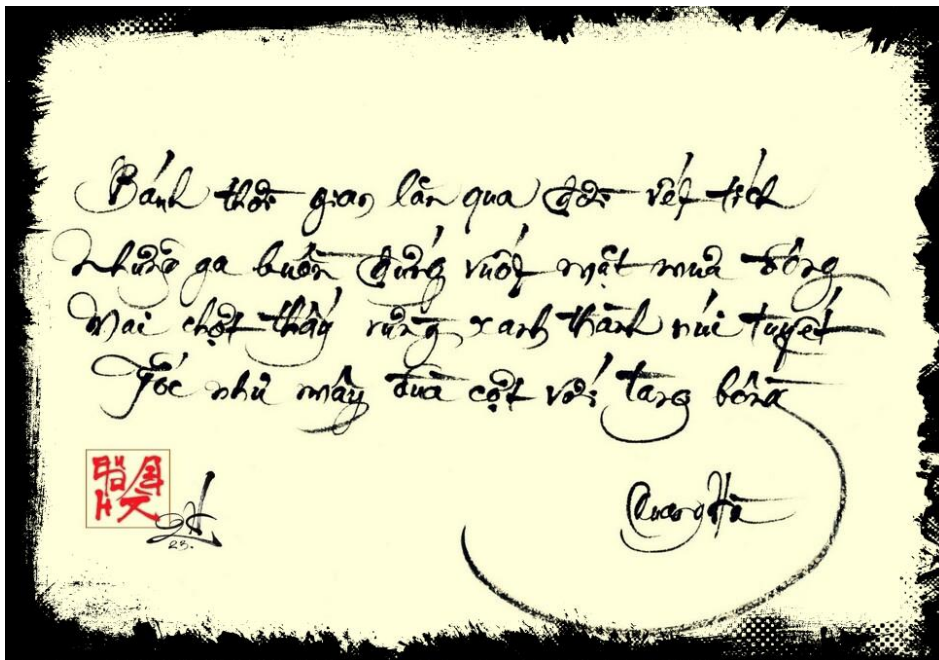 Bánh thời gian lăn qua đời vết tích
Những ga buồn đứng vuốt mặt mưa đông
Mai chợt thấy rừng xanh thành núi tuyết
Tóc như mây đùa cợt với tang bồng
Quang Hà
23.